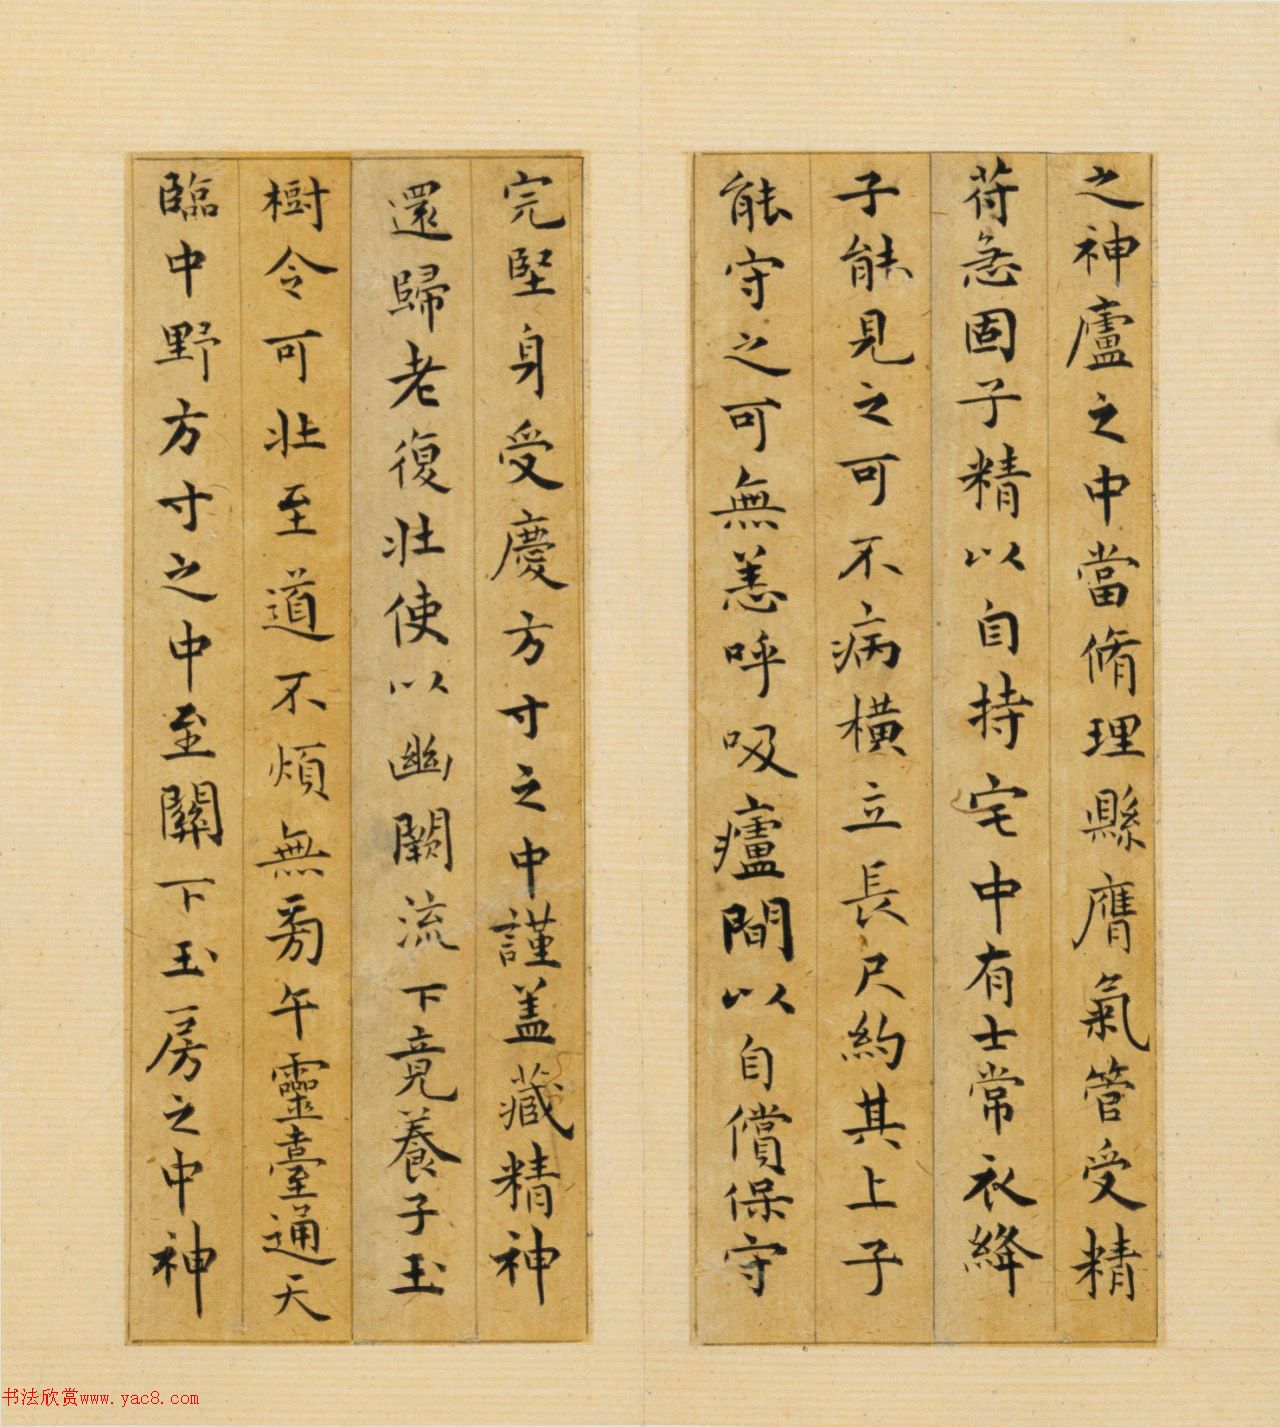 之神廬之中當脩理縣膺氣管受精
苻急固子精以自持宅中有士常衣絳
子能見之可不病橫立長尺約其上子
能守之可無恙呼吸廬間以自償保守
完堅身受慶方寸之中謹盖藏精神
還歸老復壯使以幽闕流下竟養子玉
樹令可壯至道不煩無旁午靈臺通天
臨中野方寸之中至關下玉房之中神
书法欣赏www.yac8.com